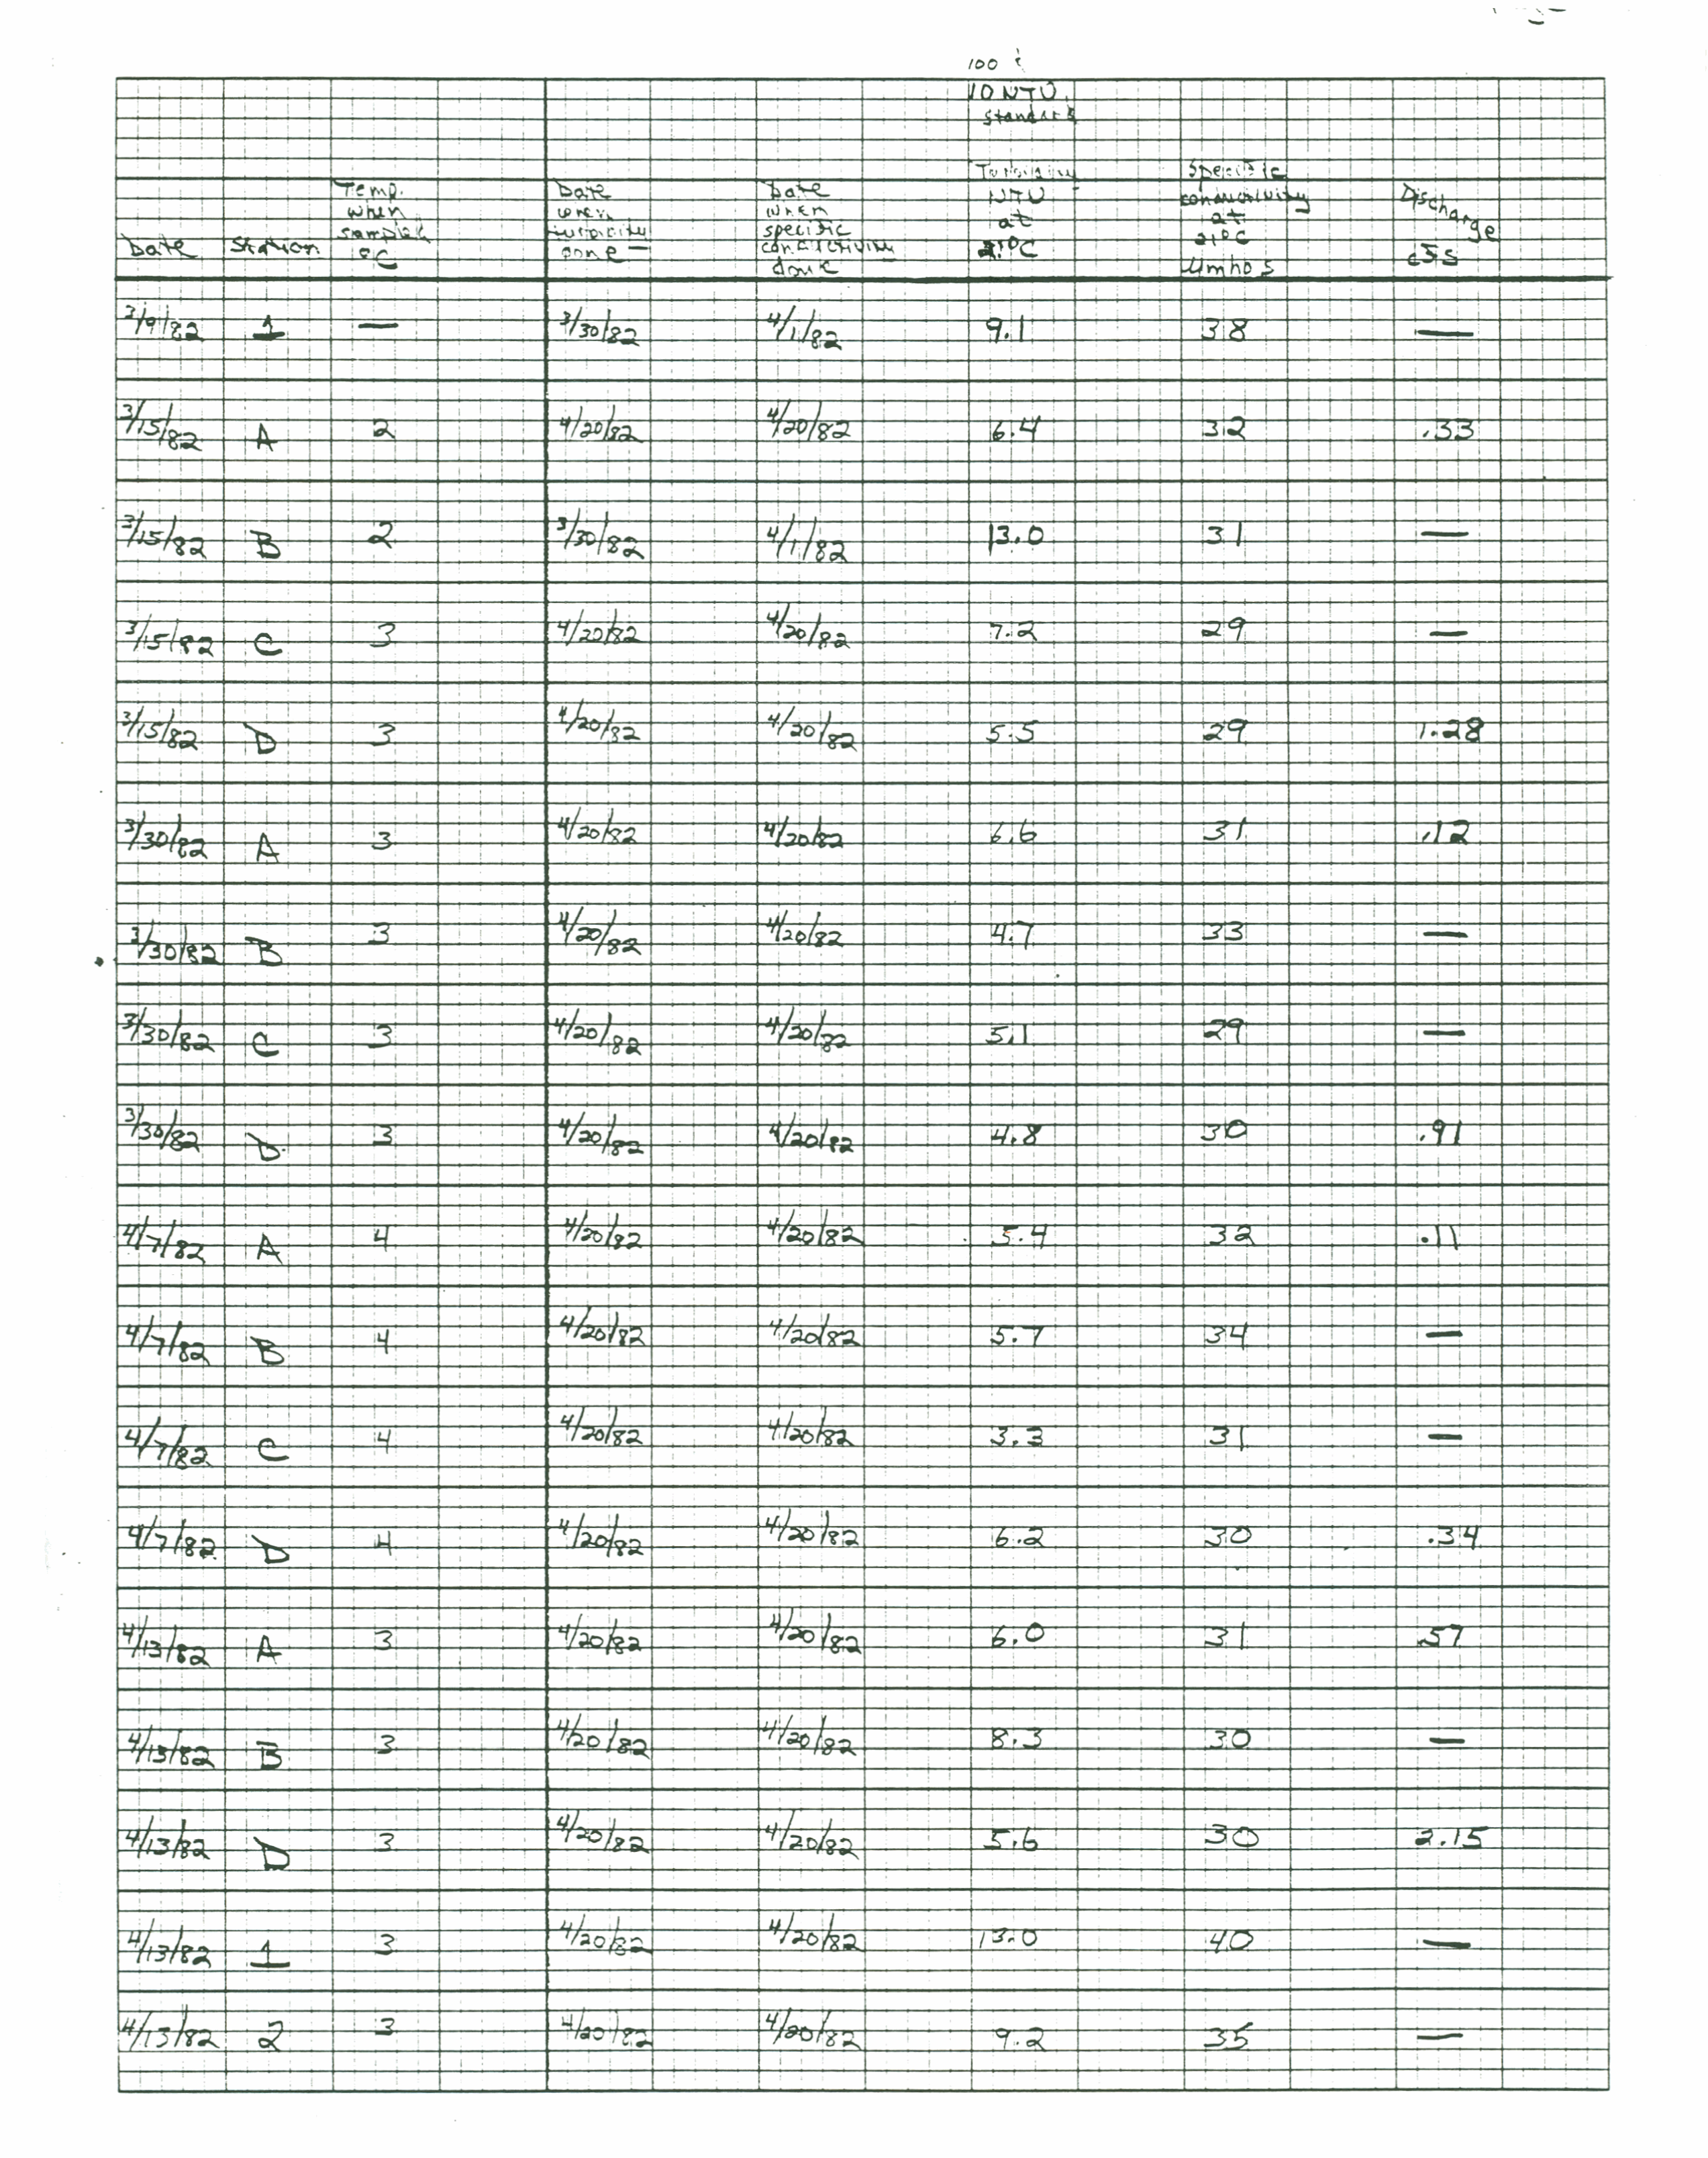 100 &
10 NTU
Standard
Date
Station
Temp.
when
sampled
°C
Date
when
turbidity
done
Date
when
specific
conductivity
done
Turbidity
NTU
at
21°C
Specific
conductivity
at
21°C
µmhos
Discharge
cfs
3/9/82 1 — 3/30/82 4/1/82 9.1 38 —
3/15/82 A 2 4/20/82 4/20/82 6.4 32 .33
3/15/82 B 2 3/30/82 4/1/82 13.0 31 —
3/15/82 C 3 4/20/82 4/20/82 7.2 29 —
3/15/82 D 3 4/20/82 4/20/82 5.5 29 1.28
3/30/82 A 3 4/20/82 4/20/82 6.6 31 .12
3/30/82 B 3 4/20/82 4/20/82 4.7 33 —
3/30/82 C 3 4/20/82 4/20/82 5.1 29 —
3/30/82 D 3 4/20/82 4/20/82 4.8 30 .91
4/7/82 A 4 4/20/82 4/20/82 5.4 32 .11
4/7/82 B 4 4/20/82 4/20/82 5.7 34 —
4/7/82 C 4 4/20/82 4/20/82 3.3 31 —
4/7/82 D 4 4/20/82 4/20/82 6.2 30 .34
4/13/82 A 3 4/20/82 4/20/82 6.0 31 .57
4/13/82 B 3 4/20/82 4/20/82 8.3 30 —
4/13/82 D 3 4/20/82 4/20/82 5.6 30 2.15
4/13/82 1 3 4/20/82 4/20/82 13.0 40 —
4/13/82 2 3 4/20/82 4/20/82 9.2 35 —